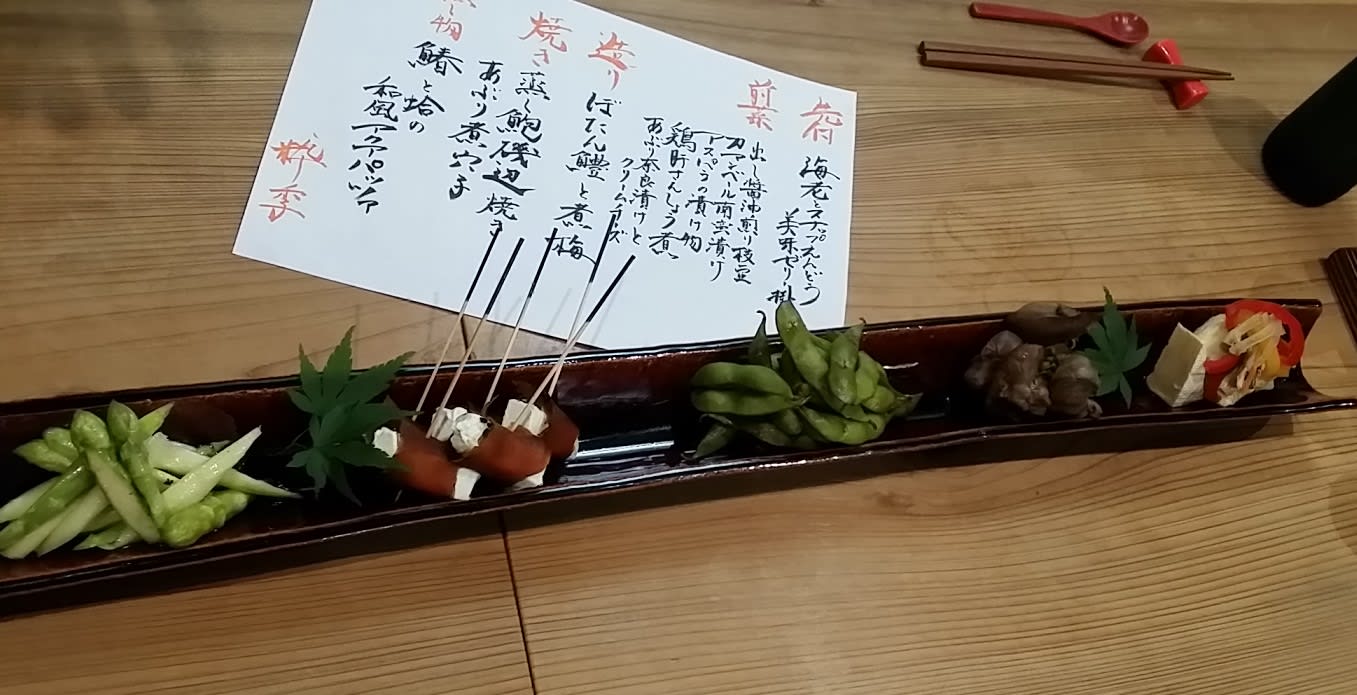 先付
海老とスナップえんどう
美味ゼリー掛
前菜
出し醤油煎り枝豆
カマンベール南蛮漬け
アスパラの漬け物
鶏肝さんしょう煮
あぶり奈良漬けと
クリームチーズ
造り
ぼたん鱧と煮梅
焼き
蒸し鮑磯辺焼き
あぶり煮穴子
し物
鰆と蛤の
和風アクアパッツァ
粋季